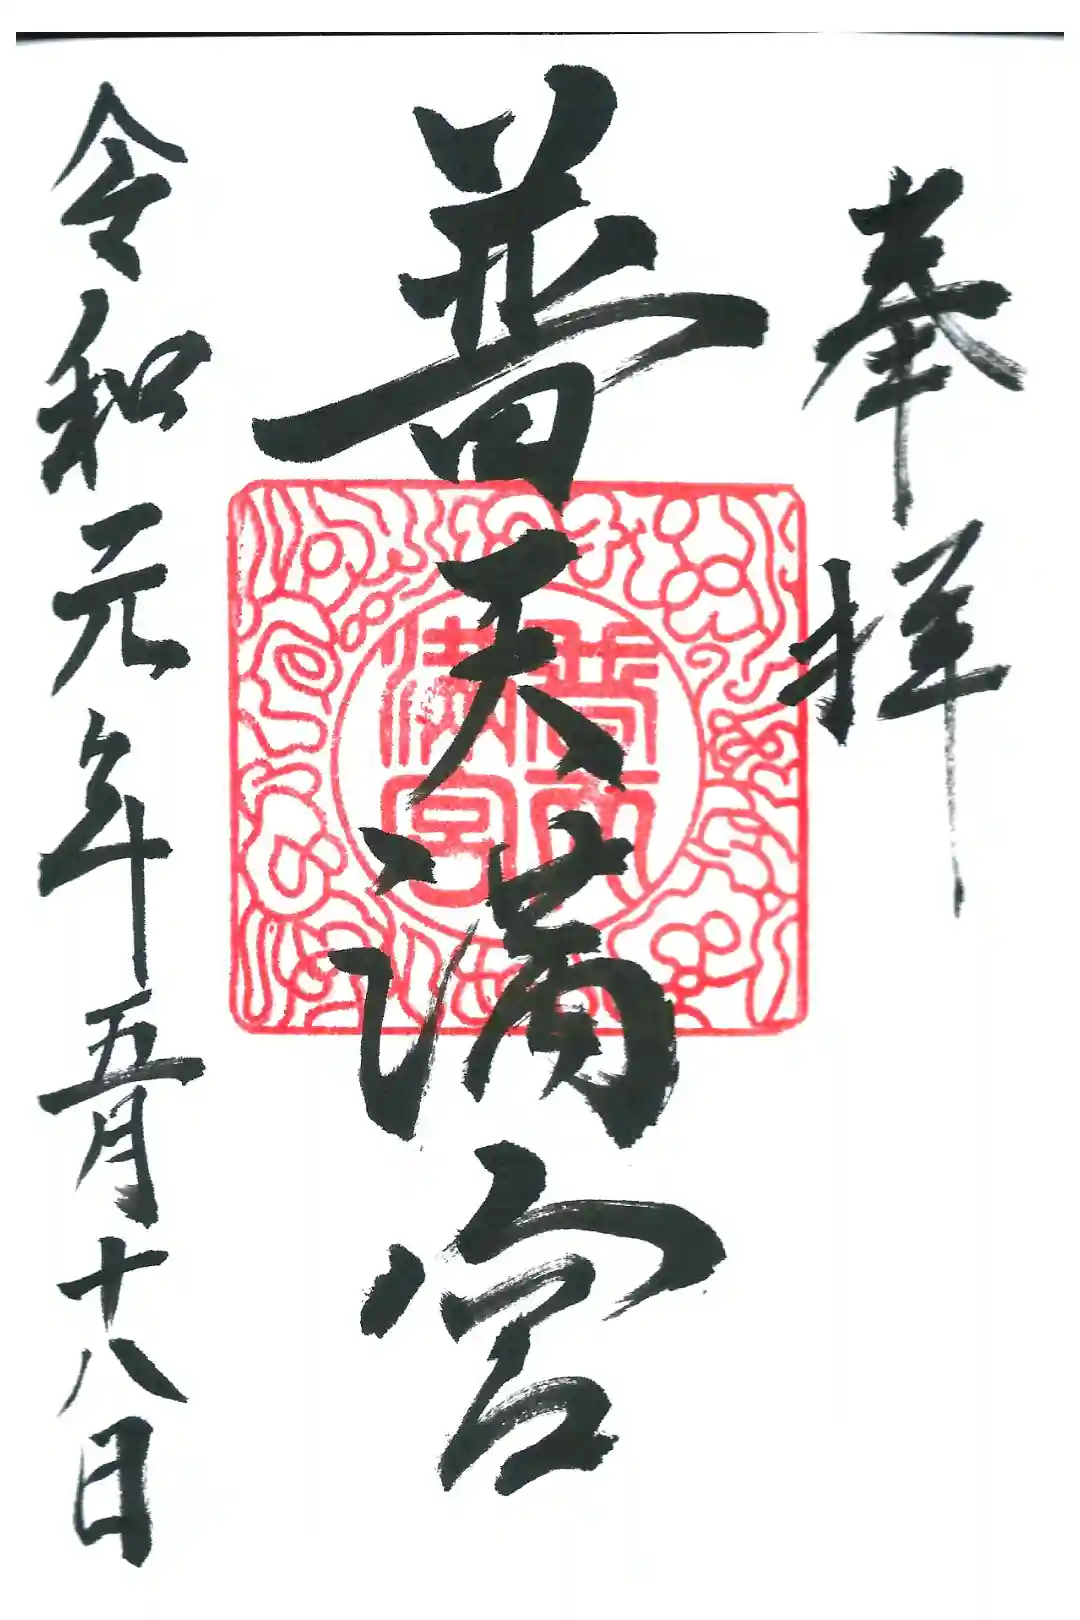 奉拝
普天満宮
令和元年五月十八日